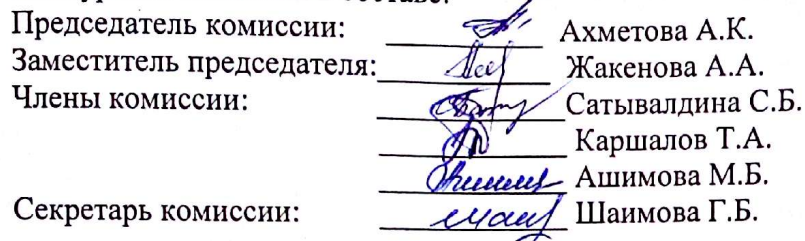 Председатель комиссии: Ахметова А.К.
Заместитель председателя: Жакенова А.А.
Члены комиссии: Сатывалдина С.Б.
Каршалов Т.А.
Ашимова М.Б.
Секретарь комиссии: Шаимова Г.Б.